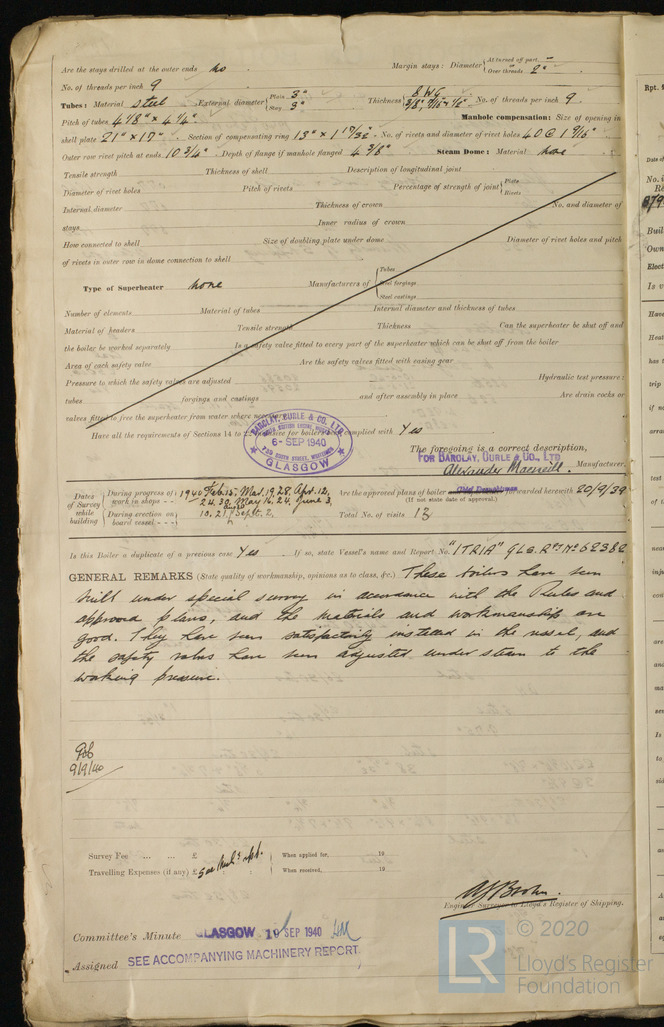 Are the stays drilled at the outer ends no Margin stays: Diameter { At turned off part, or Over threads 2"
No. of threads per inch 9
Tubes: Material steel External diameter { Plain 3" Stay 3" Thickness { 8 WG 3/8", 7/16" & 1/2" No. of threads per inch 9
Pitch of tubes 4 1/8" x 4 1/4" Manhole compensation: Size of opening in
shell plate 21" x 17" Section of compensating ring 13" x 1 17/32" No. of rivets and diameter of rivet holes 40 @ 1 9/16"
Outer row rivet pitch at ends 10 3/4" Depth of flange if manhole flanged 4 3/8" Steam Dome: Material none
Tensile strength Thickness of shell Description of longitudinal joint
Diameter of rivet holes Pitch of rivets Percentage of strength of joint { Plate Rivets
Internal diameter Thickness of crown No. and diameter of
stays Inner radius of crown
How connected to shell Size of doubling plate under dome Diameter of rivet holes and pitch
of rivets in outer row in dome connection to shell
Type of Superheater none Manufacturers of { Tubes Steel forgings Steel castings
Number of elements Material of tubes Internal diameter and thickness of tubes
Material of headers Tensile strength Thickness Can the superheater be shut off and
the boiler be worked separately Is a safety valve fitted to every part of the superheater which can be shut off from the boiler
Area of each safety valve Are the safety valves fitted with easing gear
Pressure to which the safety valves are adjusted Hydraulic test pressure:
tubes forgings and castings and after assembly in place Are drain cocks or
valves fitted to free the superheater from water where necessary
Have all the requirements of Sections 14 to for boilers been complied with Yes
BARCLAY, CURLE & CO., LTD.
6-SEP 1940
GLASGOW
The foregoing is a correct description,
FOR BARCLAY, CURLE & CO., LTD
Alexander Macneill. Manufacturer.
Dates of Survey while building { During progress of work in shops - - 1940 Feb. 15. Mar. 19, 28. Apr. 12, 24, 30. May 16, 24. June 3,
During erection on board vessel - - - 10, 21. Sept. 2.
Are the approved plans of boiler forwarded herewith 20/9/39
(If not state date of approval.)
Total No. of visits 12
Is this Boiler a duplicate of a previous case Yes If so, state Vessel's name and Report No. "ITRIA" GLS. Rpt No 62382
GENERAL REMARKS (State quality of workmanship, opinions as to class, &c.) These boilers have been
built under special survey in accordance with the Rules and
approved plans, and the materials and workmanship are
good. They have been satisfactorily installed in the vessel, and
the safety valves have been adjusted under steam to the
working pressure.
9/9/40
Survey Fee ... ... £ When applied for, 19
Travelling Expenses (if any) £ See Mach'y rpt. When received, 19
Engineer Surveyor to Lloyd's Register of Shipping.
Committee's Minute GLASGOW 10 SEP 1940
Assigned SEE ACCOMPANYING MACHINERY REPORT.
LR © 2020
Lloyd's Register
Foundation
Rpt.